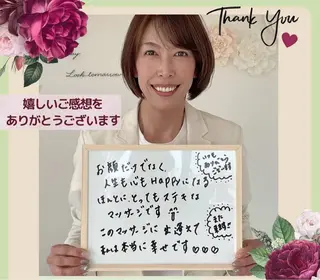 Thank You
Look tomorrow
嬉しいご感想を
ありがとうございます
お腹だけでなく、
人生も心もHAPPYになる
ほんとに、とってもステキな
マッサージです
このマッサージに出逢えて
私は本当に幸せです♡♡♡
いつも
また